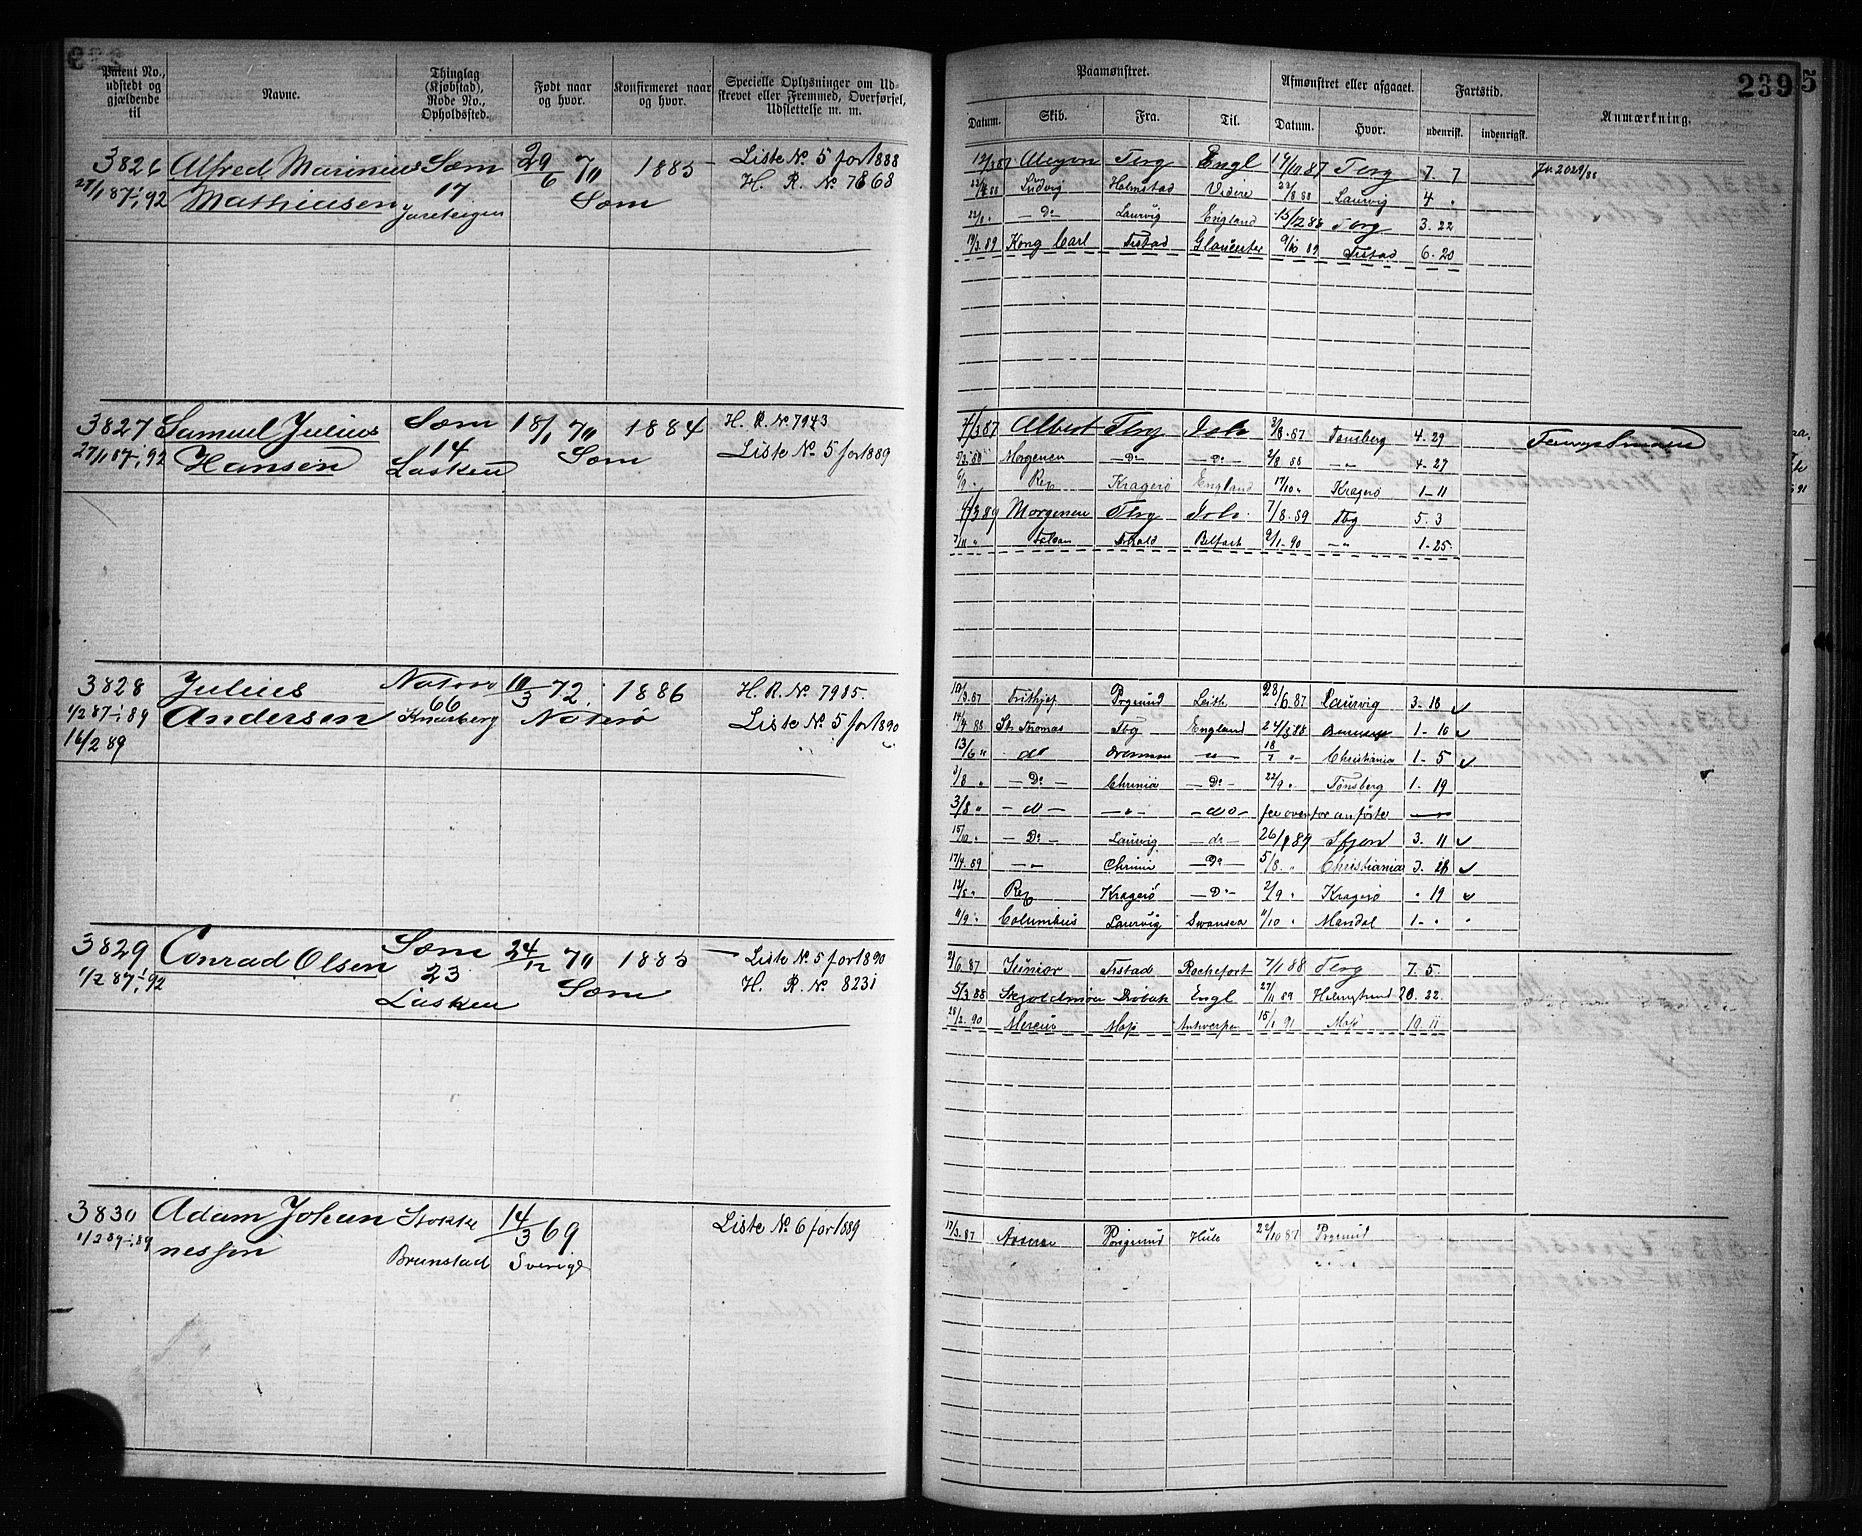 239
5
Patent No., udstedt og gjældende til
Navne.
Thinglag (Kjøbstad), Rode No., Opholdssted.
Født naar og hvor.
Konfirmeret naar og hvor.
Specielle Oplysninger om Udskrevet eller Fremmed, Overførsel, Udslettelse m. m.
Paamønstret.
Afmønstret eller afgaaet.
Fartstid.
Anmærkning.
Datum. Skib. Fra. Til. Datum. Hvor. udenrigsk. indenrigsk.
3826 Alfred Marinius Sæm 29/6 70 1885 Liste No. 5 for 1888
27/1 87-1/1 92 Mathiasen 17 Sæm H. R. No 7868
Jareteigen
12/3 87 Tbrg Engl 14/10 87 Tbrg 7. 7
Ludvig Holmstad 22/8 88 Laurvig 4 "
22/8 " - Do - Laurvig England 15/12 88 Tbrg 3. 22
19/3 89 Kong Carl Frstad Gloucester 9/10 89 Frstad 6-20
3827 Samuel Julius Sæm 18/1 70 1884 H. R. No 7943
27/1 87-1/1 92 Hansen 14 Sæm Liste No. 5 for 1889
Lasken
4/3 87 Albert Tbrg Ish. 3/8 87 Tønsberg 4. 29
Morgenen - Do - - Do - 2/8 88 - " - 4-27
6/9 " Rex Kragerø England 17/10 " Kragerø 1-11
4/3 89 Morgenen Tbrg Ish. 7/8. 89 Tbg 5. 3
7/11 " Belfast 9/1-90 - " - 1-25
3828 Julius Nøterø 10/3 72 1886 H. R. No 7985.
1/2 87-1/1 89 Andersen 66 Nøterø Liste No. 5 for 1890
16/2 89 Knarberg
10/3. 87 Frithjof Prgrund Leith 28/6. 87 Laurvig 3-18
14/4 88 St. Thomas Tbg England 24/5 88 1-10
13/6 " do Drammen - " - 18/7 " Christiania 1-5
3/8 " - Do - Chrnia - Do - 22/9 " Tønsberg 1. 19
3/8 " - do - - " - - do - før anførte
15/10 " - Do - Laurvig - do - 26/1 89 3. 11
17/4. 89 - " - Chrnia - Do - 5/8 " Christiania 3. 28
12/8 " Rex Kragerø - Do - 2/9 " Kragerø " 19
11/9 " Columbus Laurvig Swansea 11/10 " Mandal 1- "
3829 Conrad Olsen Sæm 24/12 70 1885 Liste No. 5 for 1890
1/2 87-1/1 92 23 Sæm H. R. No 8231
Lasken
2/6 87 Junior Frstad Rochefort 7/1 88 Tbrg 7. 5
5/3 88 Skjoldmøen Drøbak Engl 27/11 89 Holmstrand 20. 22.
28/2. 90 Mercur Msjø Antwerpen 15/1 91 Msjø 10 11
3830 Adam Johan Stokke 14/3 69 Liste No. 6 for 1889
1/2 89-1/1 89 nessen Brunstad Sverige
17/3. 87 Porsgrund Hull 22/10 87 Prgrund